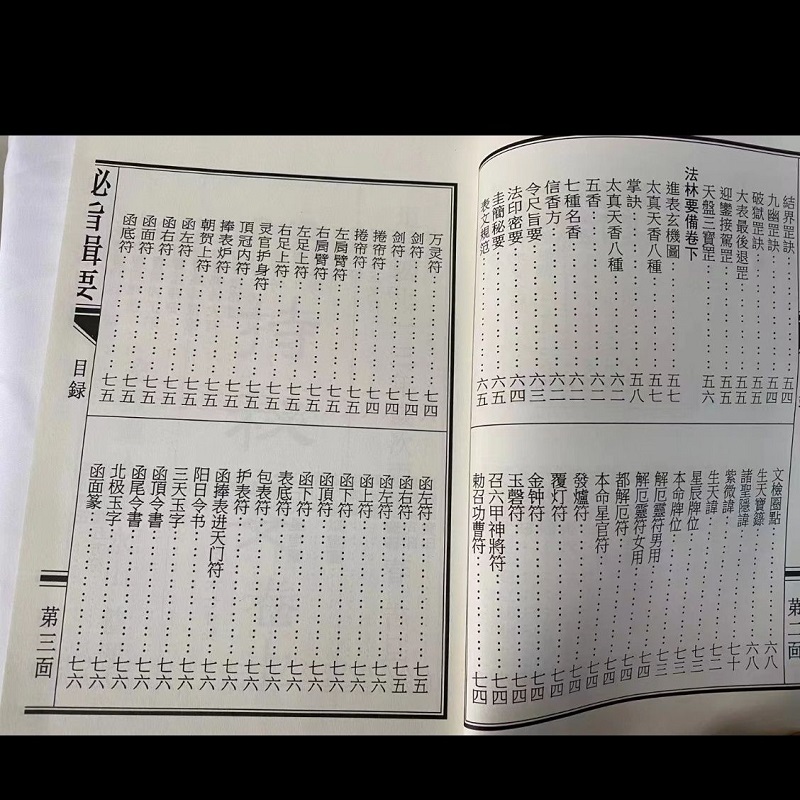 结界罡訣 五四
九幽罡訣 五四
破獄罡訣 五五
大表最後退罡 五五
迎鑾接駕罡 五五
天盤三寶罡 五六
法林要備卷下
進表玄機圖 五七
太真天香八種 五七
掌訣 五八
太真天香八種 六二
五香 六二
七種名香 六二
信香方 六二
令尺旨要 六三
法印密要 六四
圭簡秘要 六四
表文規范 六五
文檢圈點 六八
生天寶錄 六八
諸聖隱諱 六八
紫微諱 七十
生天諱 七二
星辰牌位 七三
本命牌位 七三
解厄靈符男用 七三
解厄靈符女用 七四
都解厄符 七四
本命星官符 七四
發爐符 七四
覆灯符 七四
金钟符 七四
玉磬符 七四
召六甲神將符 七四
勅召功曹符 七四
第二面
万灵符 七四
剑符 七四
剑符 七四
捲帘符 七四
捲帘符 七五
左肩臂符 七五
右肩臂符 七五
左足上符 七五
右足上符 七五
灵官护身符 七五
頂冠内符 七五
捧表炉符 七五
朝贺上符 七五
函左符 七五
函右符 七五
函面符 七五
函底符 七五
函左符 七五
函右符 七五
函上符 七六
函下符 七六
函頂符 七六
函下符 七六
表底符 七六
包表符 七六
护表符 七六
函捧表进天门符 七六
阳日令书 七六
三天玉字 七六
函頂令書 七六
函尾令書 七六
北极玉字 七六
函面篆 七六
必旨輯要
目録
第三面